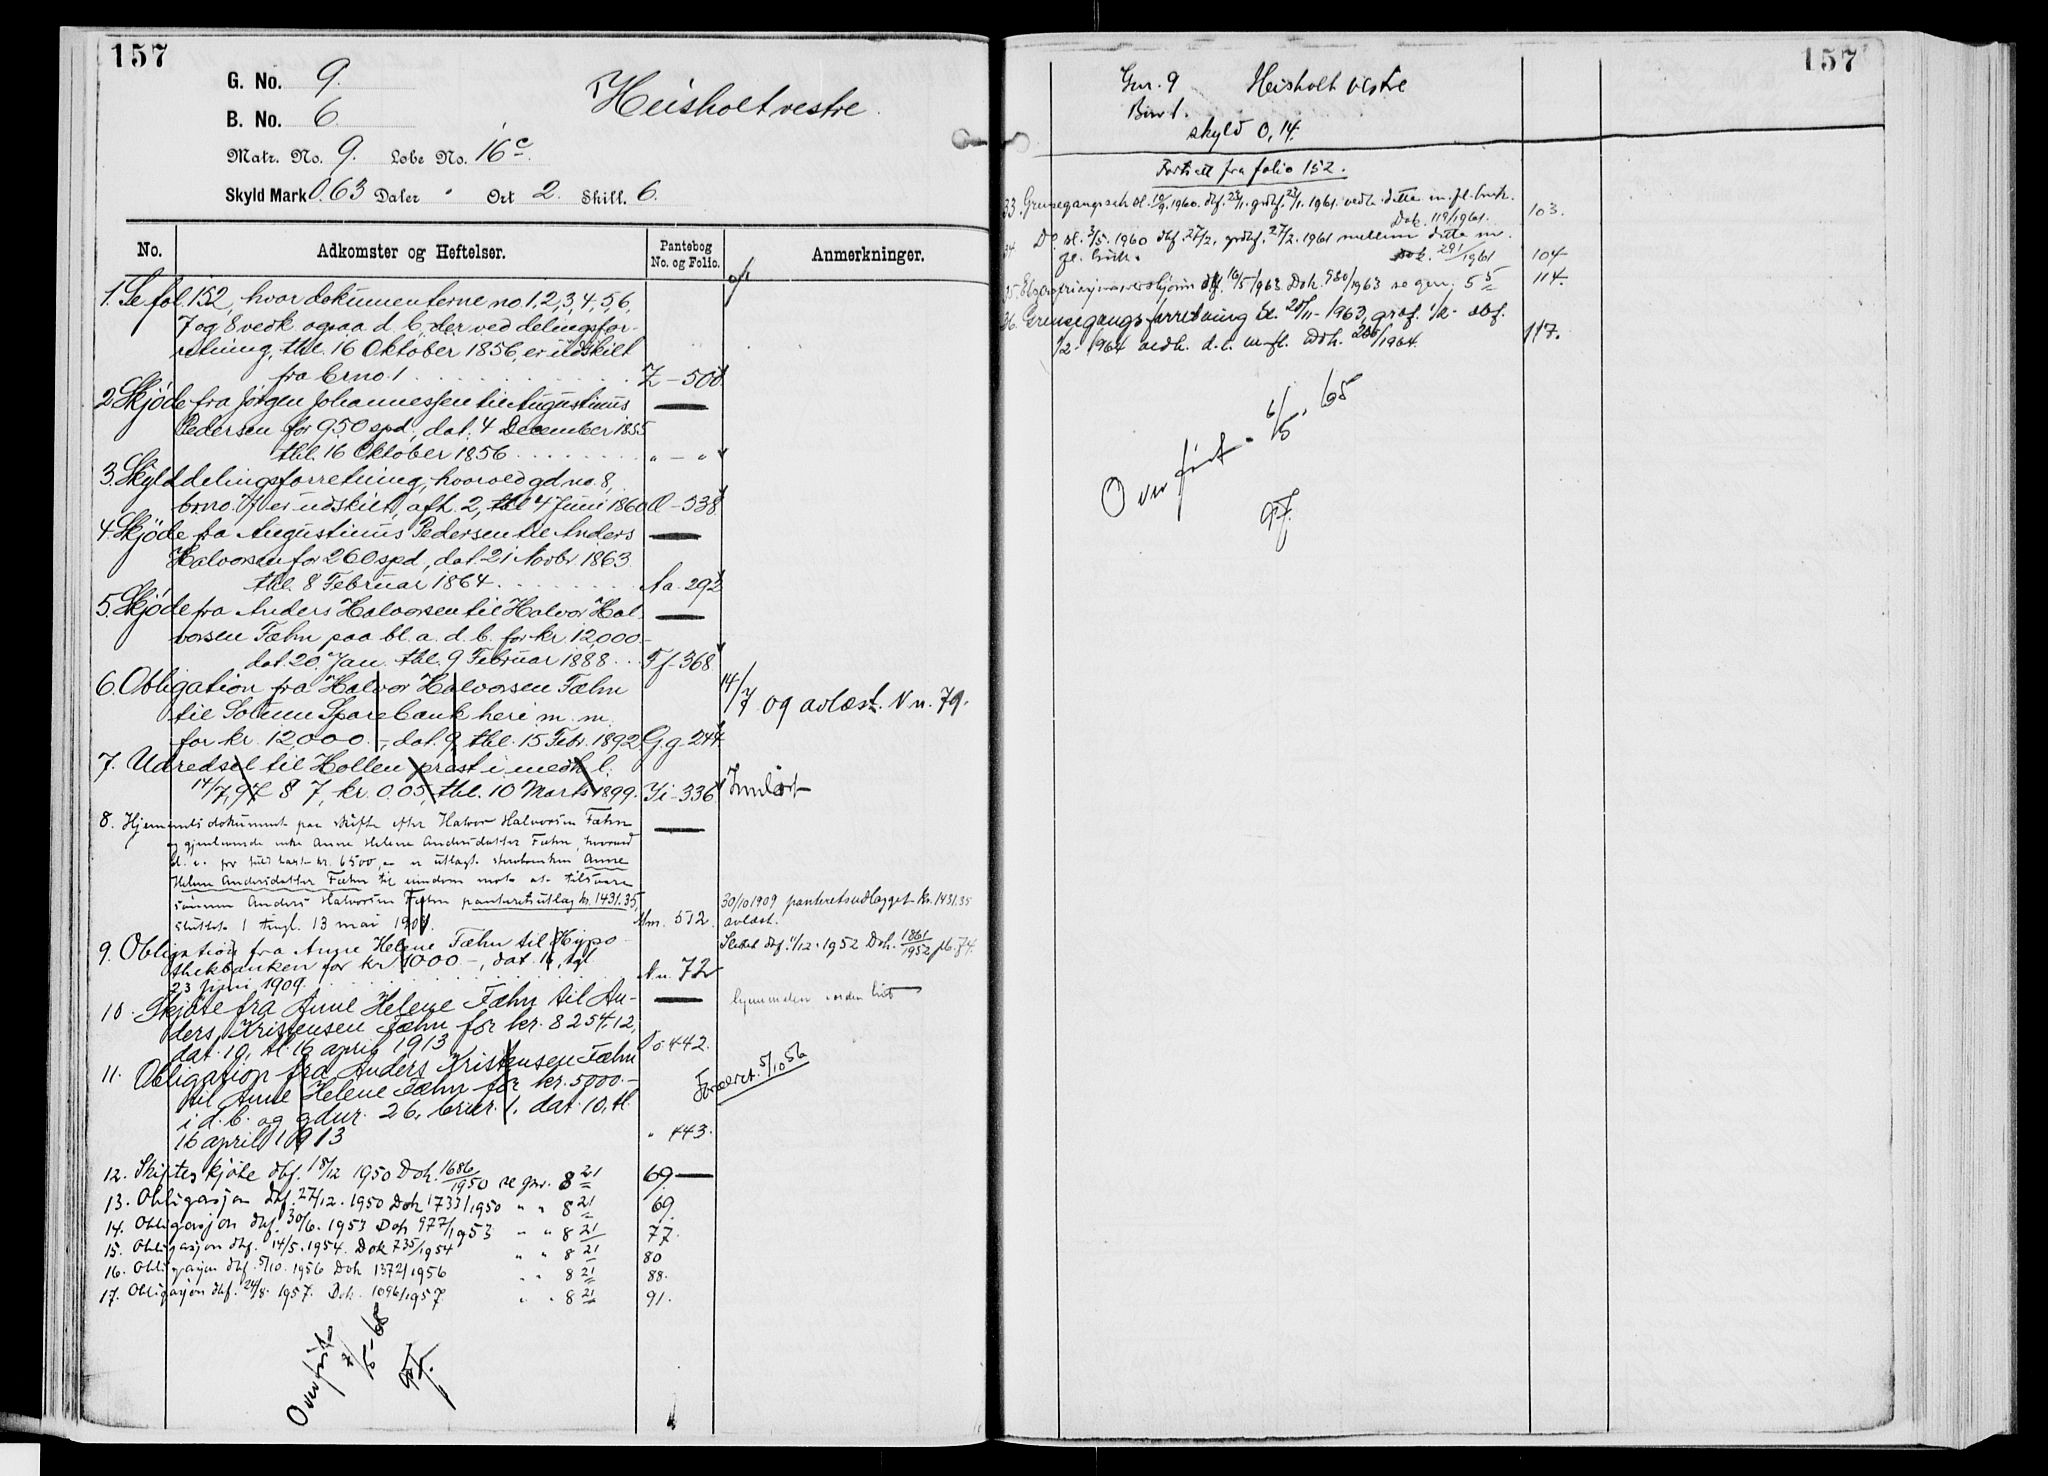 157
G. No. 9.
B. No. 6.
Heisholt vestre.
Matr. No. 9. Løbe No. 16 c.
Skyld Mark 0.63 Daler " Ort 2. Skill. 6.
No. Adkomster og Heftelser. Pantebog No. og Folio. Anmerkninger.
1. Se fol. 152, hvor dokumenterne no. 1, 2, 3, 4, 5, 6,
7 og 8 vedk. ogsaa d. b., der ved delingsfor-
retning, thl. 16 Oktober 1856, er udskilt
fra brno. 1 Z - 500
2. Skjøde fra Jørgen Johannessen til Augustinus
Pedersen for 950 spd., dat. 4 December 1855
thl. 16 Oktober 1856 " - "
3. Skylddelingsforretning, hvorved gd no. 8,
brno. 7, er udskilt, afh. 2, thl. 4 Juni 1860 Æ - 538
4. Skjøde fra Augustinus Pedersen til Anders
Halvorsen for 260 spd., dat. 21 Novbr. 1863
thl. 8 Februar 1864 Aa. 292
5. Skjøde fra Anders Halvorsen til Halvor Hal-
vorsen Fæhn paa bl. a. d. b. for kr. 12,000.-
dat. 20. Jan. thl. 9 Februar 1888 Ff - 368
6. Obligation fra Halvor Halvorsen Fæhn
til Solum Sparebank heri m. m.
for kr. 12,000.-, dat. 9, thl. 15 Febr. 1892 Gg. 244
14/7 09 avlæst. Nn. 79.
7. Udredsel til Hollen præst i medh. l.
14/7, 94 § 7, kr. 0.05, thl. 10 Marts 1899. Ii - 336 Innløst
8. Hjemmelsdokument paa skifte efter Halvor Halvorsen Fæhn
og gjenlevende enke Anne Helene Andersdatter Fæhn, hvorved
bl. a. for fuld takst kr. 6500,- er utlagt sterboenken Anne
Helene Andersdatter Fæhn til eiendom mot at tilsvare
sønnen Anders Halvorsen Fæhn panteretsutlæg kr. 1431.35,
sluttet 1 tingl. 13 mai 1908. Mm. 572
30/10 1909 panteretsudlægget kr. 1431.35
avlæst.
9. Obligation fra Anne Helene Fæhn til Hypo-
thekbanken for kr. 1000.-, dat. 16, tgl.
23 juni 1909. Nn. 72
Slettet dbf. 11/12 1952 Dok. 1861/1952 pb. 74.
10. Skjøte fra Anne Helene Fæhn til An-
ders Kristensen Fæhn for kr. 8254.12,
dat. 10, tl. 16 april 1913 Oo 442.
hjemmelen i orden hit
11. Obligation fra Anders Kristensen Fæhn
til Anne Helene Fæhn for kr. 5000.-
i d. b. og gdnr. 26, brnr. 1, dat. 10, tl.
16 april 1913 " 443.
Foreldet 5/10 56
12. Skifteskjøte dbf. 18/12 1950 Dok. 1686/1950 se gnr. 8 21 69.
13. Obligasjon dbf. 27/12. 1950 Dok 1733/1950 " " 8 21 69.
14. Obligasjon dbf. 30/6. 1953 Dok 977/1953 " " 8 21 77.
15. Obligasjon dbf. 14/5. 1954. Dok 735/1954 " " 8 21 80
16. Obligasjon dbf. 5/10. 1956 Dok 1372/1956 " " 8 21 88.
17. Obligasjon dbf. 24/8. 1957. Dok. 1096/1957. " " 8 21 91.
Overført
157
Gnr. 9 Heisholt vestre
Bnr 1.
skyld 0,14.
Fortsatt fra folio 152.
33. Grensegangssak dl. 10/9. 1960. dbf. 23/1. grdbf. 23/1. 1961. vedk. dette m. fl. bruk.
Dok. 119/1961. 103.
34 Do dl. 3/5. 1960 dbf. 27/2. grdbf. 27/2. 1961 mellem dette m.
fl. bruk. Dok. 291/1961 104
35. Ekspropriasjonsskjønn dbf. 16/5/1963 Dok. 980/1963 se gnr. 5 5 114.
36. Grensegangsforretning dl. 20/11- 1963, grbf. 1/2- dbf.
1/2- 1964 vedk. d. b. m. fl. Dok. 1964. 117.
Overført. 6/5. 65